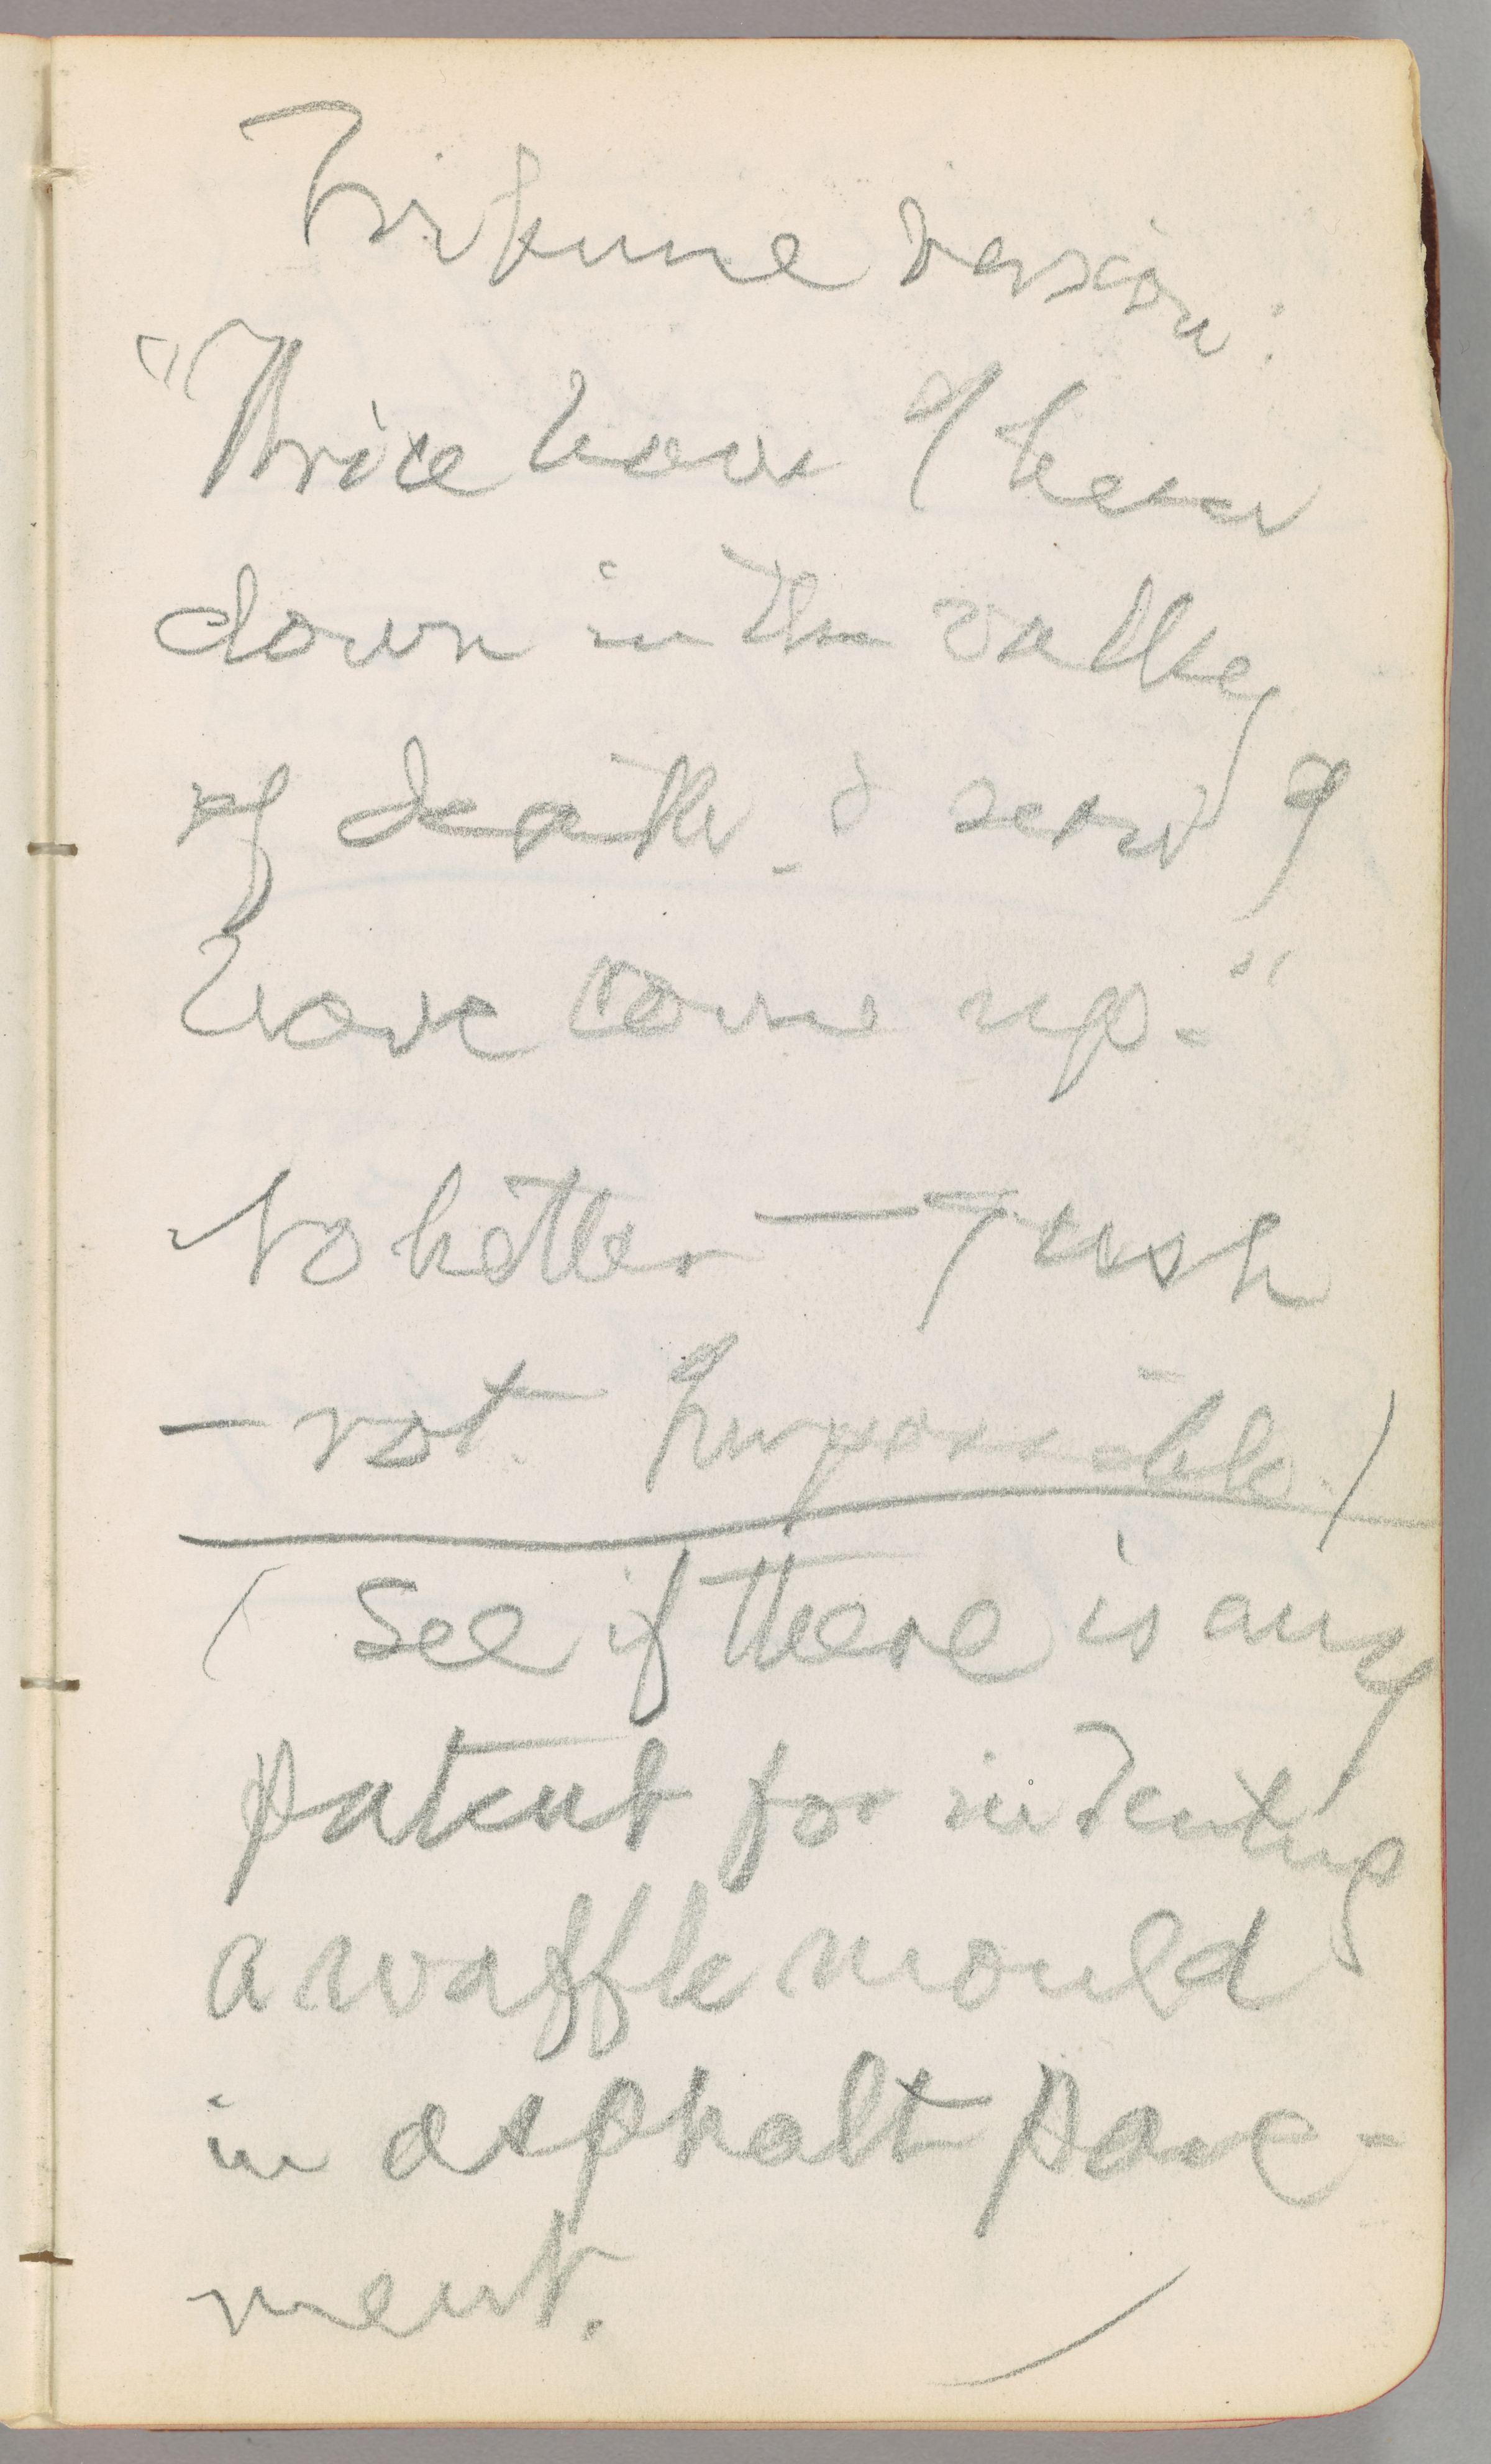 Tribune version:
"Thrice have I been
down in the valley
of death & seen I
have come up."
No better — Tush
— rot. Impossible.)
(See if there is any
patent for indenting
a waffle mould
in asphalt pave-
ment.)